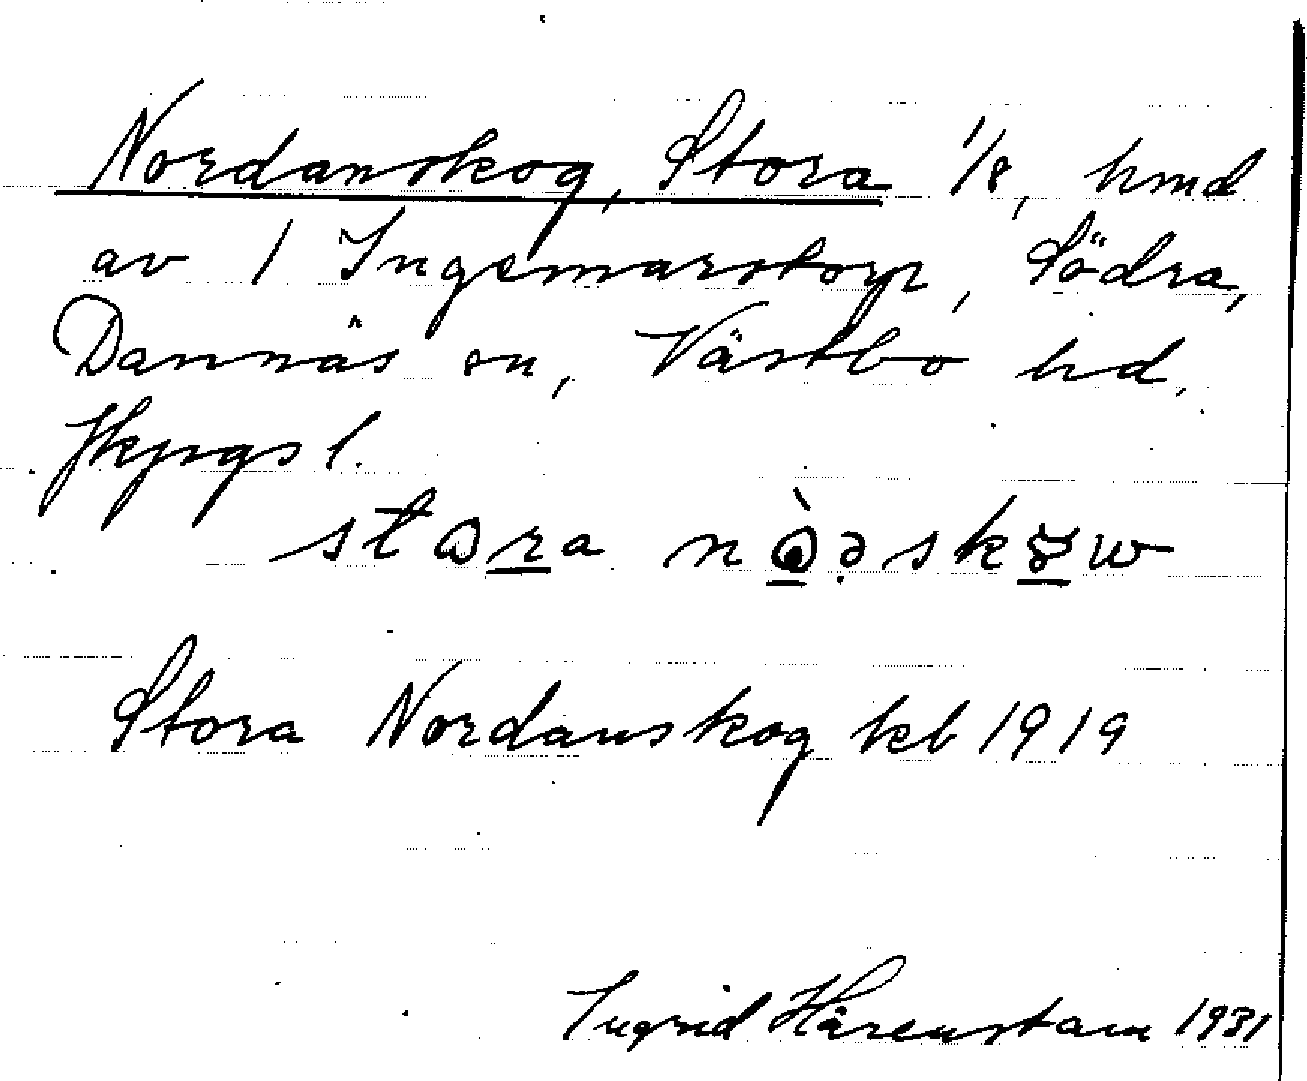 Nordanskog, Stora 1/8, hmd
av 1 Ingemarstorp, Södra,
Dannäs sn, Västbo hd.
Jkpgs l.
Stora Nordanskog kb 1919
Ingrid Härenstam 1931